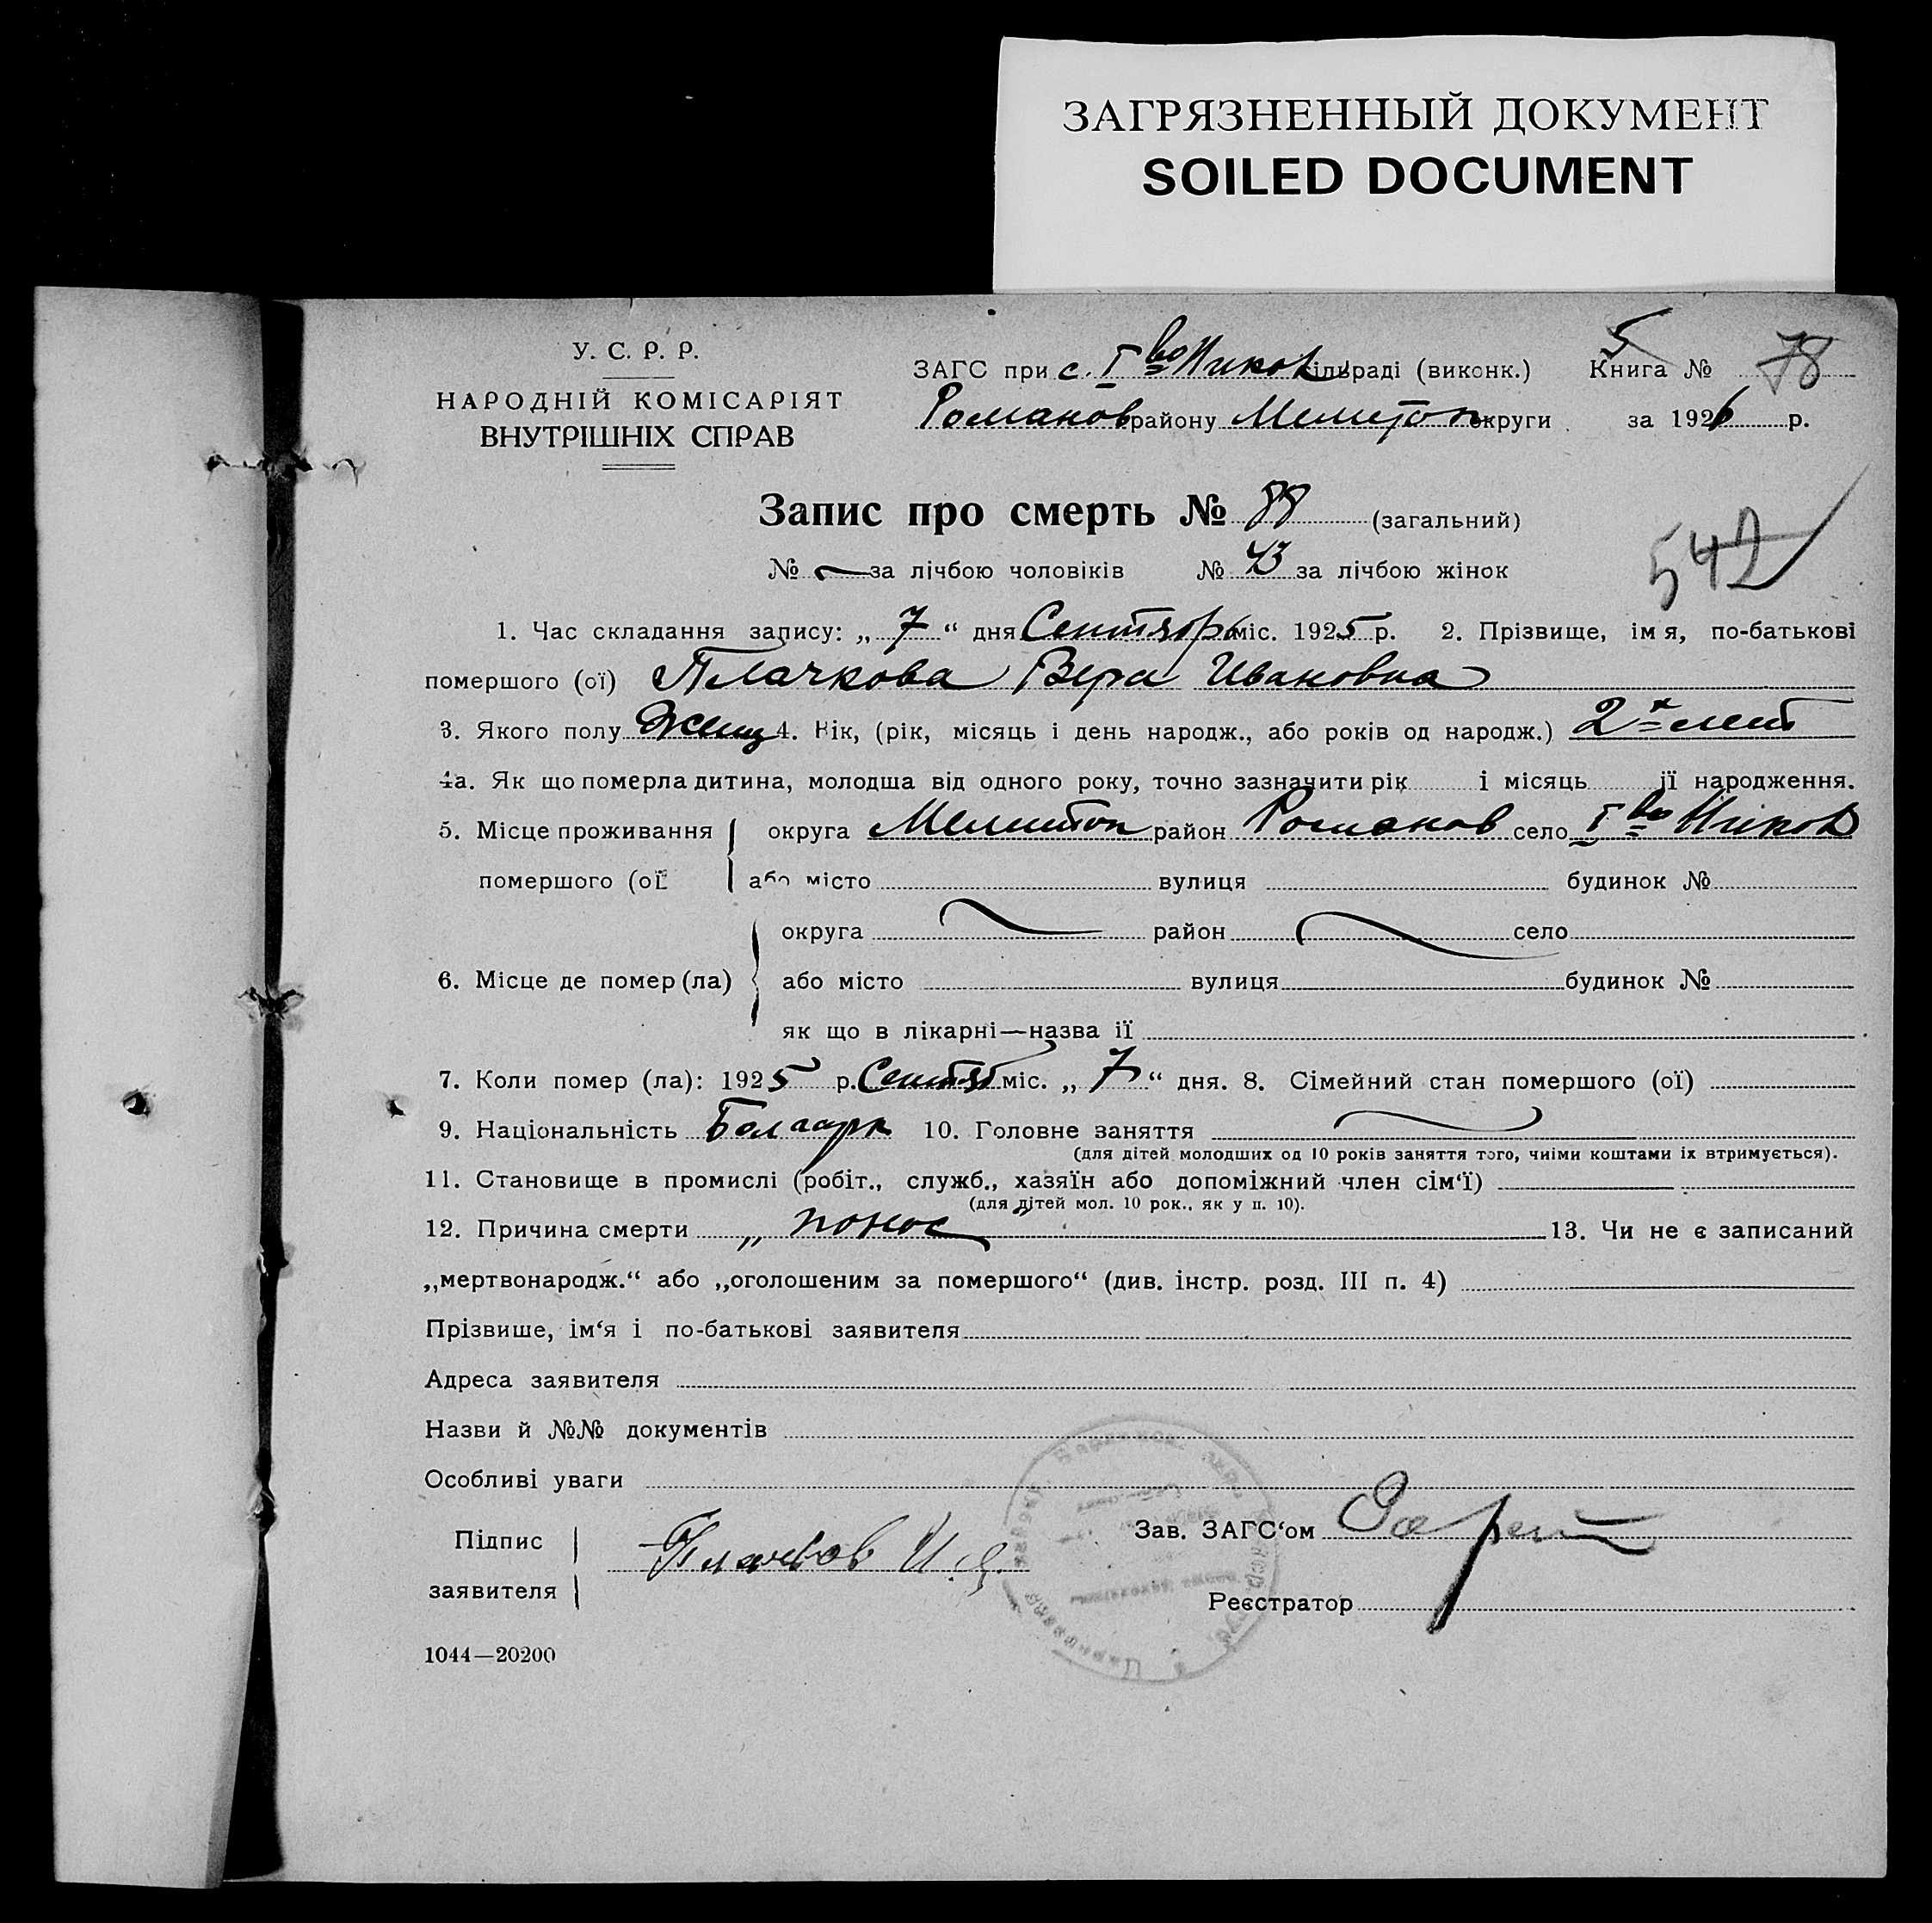 ЗАГРЯЗНЕННЫЙ ДОКУМЕНТ
SOILED DOCUMENT
У. С. Р. Р.
НАРОДНІЙ КОМІСАРІЯТ
ВНУТРІШНІХ СПРАВ
ЗАГС при с. Iво Никол сільраді (виконк.)
Романов району Мелитоп округи
5
Книга № 78
за 1926 р.
Запис про смерть № 88 (загальний)
№ — за лічбою чоловіків № 43 за лічбою жінок
542
1. Час складання запису: „ 7 “ дня Сентябрь міс. 1925 р. 2. Прізвище, імя, по-батькові
помершого (ої) Плачкова Вера Ивановна
3. Якого полу Женщ 4. Вік, (рік, місяць і день народж., або років од народж.) 2х лет
4а. Як що померла дитина, молодша від одного року, точно зазначити рік і місяць її народження.
5. Місце проживання округа Мелитоп район Романов село Iво Никол
помершого (ої або місто вулиця будинок №
округа район село
6. Місце де помер (ла) або місто вулиця будинок №
як що в лікарні—назва її
7. Коли помер (ла): 1925 р. Сентяб міс. „ 7 “ дня. 8. Сімейний стан помершого (ої)
9. Національність Болгарк 10. Головне заняття
(для дітей молодших од 10 років заняття того, чиїми коштами їх втримується).
11. Становище в промислі (робіт., служб., хазяїн або допоміжний член сім‘ї)
(для дітей мол. 10 рок., як у п. 10).
12. Причина смерти „ понос “ 13. Чи не є записаний
„мертвонародж.“ або „оголошеним за помершого“ (див. інстр. розд. III п. 4)
Прізвише, ім‘я і по-батькові заявителя
Адреса заявителя
Назви й №№ документів
Особливі уваги
Підпис
заявителя
Плачков И.
Зав. ЗАГС‘ом
Реєстратор
1044—20200